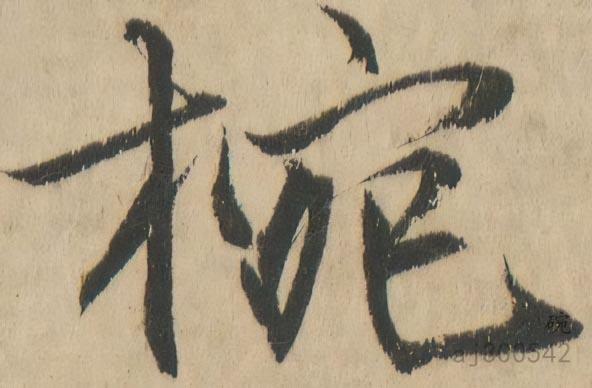 椀
碗
aj000542